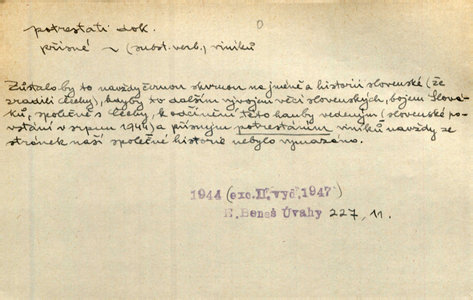 potrestati dok.
přísné ~ (subst. verb.) viníků
Zůstalo by to navždy černou skvrnou na jméně a historii slovenské (že
zradili Čechy), kdyby to dalším vývojem věcí slovenských, bojem Slová-
ků, společně s Čechy, k odčinění této hanby vedeným (slovenské po-
vstání v srpnu 1944) a přísným potrestáním viníků navždy ze
stránek naší společné historie nebylo vymazáno.
1944 (exc. II. vyd. 1947)
E. Beneš Úvahy 227, 11.